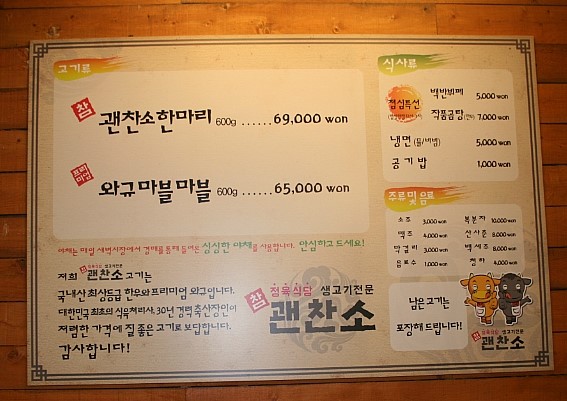 고기류
참 괜찬소한마리 600g ...... 69,000 won
프리미엄 와규마블마블 600g ...... 65,000 won
야채는 매일 새벽시장에서 경매를 통해 들여온 싱싱한 야채를 사용합니다. 안심하고 드세요!
저희 참 괜찬소 고기는
국내산 최상등급 한우와 프리미엄 와규입니다.
대한민국 최초의 식육처리사, 30년 경력 축산장인이
저렴한 가격에 질 좋은 고기로 보답합니다.
감사합니다!
참 정육식당 생고기전문
괜찬소
식사류
점심특선
백반뷔페 5,000 won
작품곰탕 7,000 won
냉면 (물/비빔) 5,000 won
공기밥 1,000 won
주류 및 음료
소주 3,000 won
맥주 4,000 won
막걸리 3,000 won
음료수 1,000 won
복분자 10,000 won
산사춘 8,000 won
백세주 8,000 won
청하 4,000 won
남은고기는
포장해 드립니다!
참 정육식당 생고기전문
괜찬소